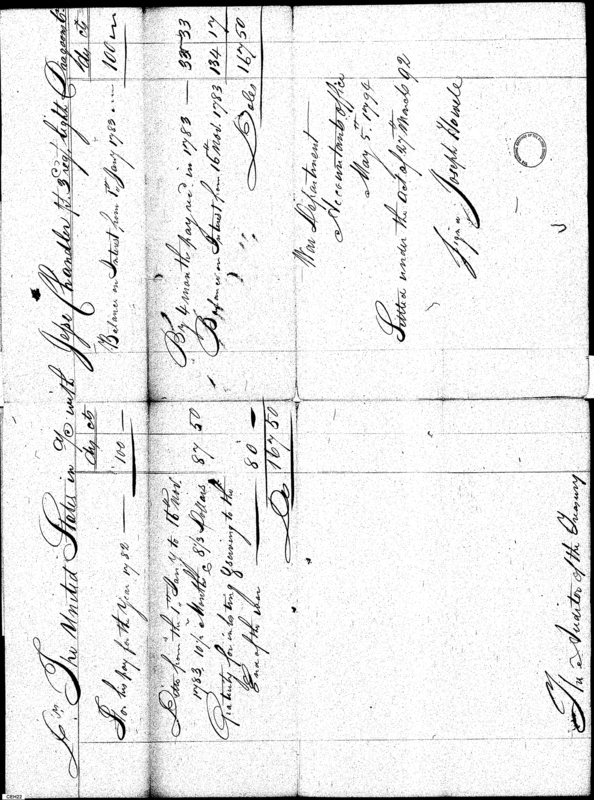 Dr. The United States in a/c with Jesse Chandler pt. 3 reg. light Dragoons Cr.
ds cts
ds cts
For his pay for the Year 1782 — 100 —
Balance on Interest from 1st Jany 1783 — 100 —
Ditto from the 1st Jany to 16th Nov.
1783, 10½ Months @ 8/3 Dollars 87 50
Gratuity for inlisting & serving to the
End of the War — 80 —
Ds 167 50
By 4 months pay recd in 1783 — 33 33
Balance on Interest from 16th Nov. 1783 134 17
Doles 167 50
War Department
Accountants office
May 5th 1794
Settled under the Act of 27th March 92
Sign'd Joseph Howell
The Auditor of the Treasury
CEH22